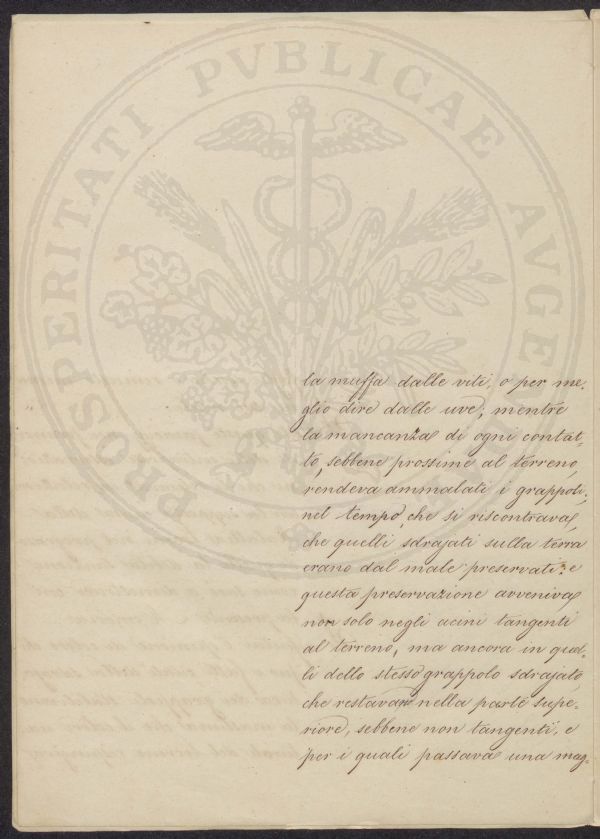 PROSPERITATI PVBLICAE AVGE
la muffa dalle viti, o per me-
glio dire dalle uve; mentre
la mancanza di ogni contat-
to, sebbene prossime al terreno,
rendeva ammalati i grappoli;
nel tempo, che si riscontrava,
che quelli sdrajati sulla terra
erano dal male preservati: e
questa preservazione avveniva
non solo negli acini tangenti
al terreno, ma ancora in quel-
li dello stesso grappolo sdrajato,
che restavan nella parte supe-
riore, sebbene non tangenti, e
per i quali passava una mag-